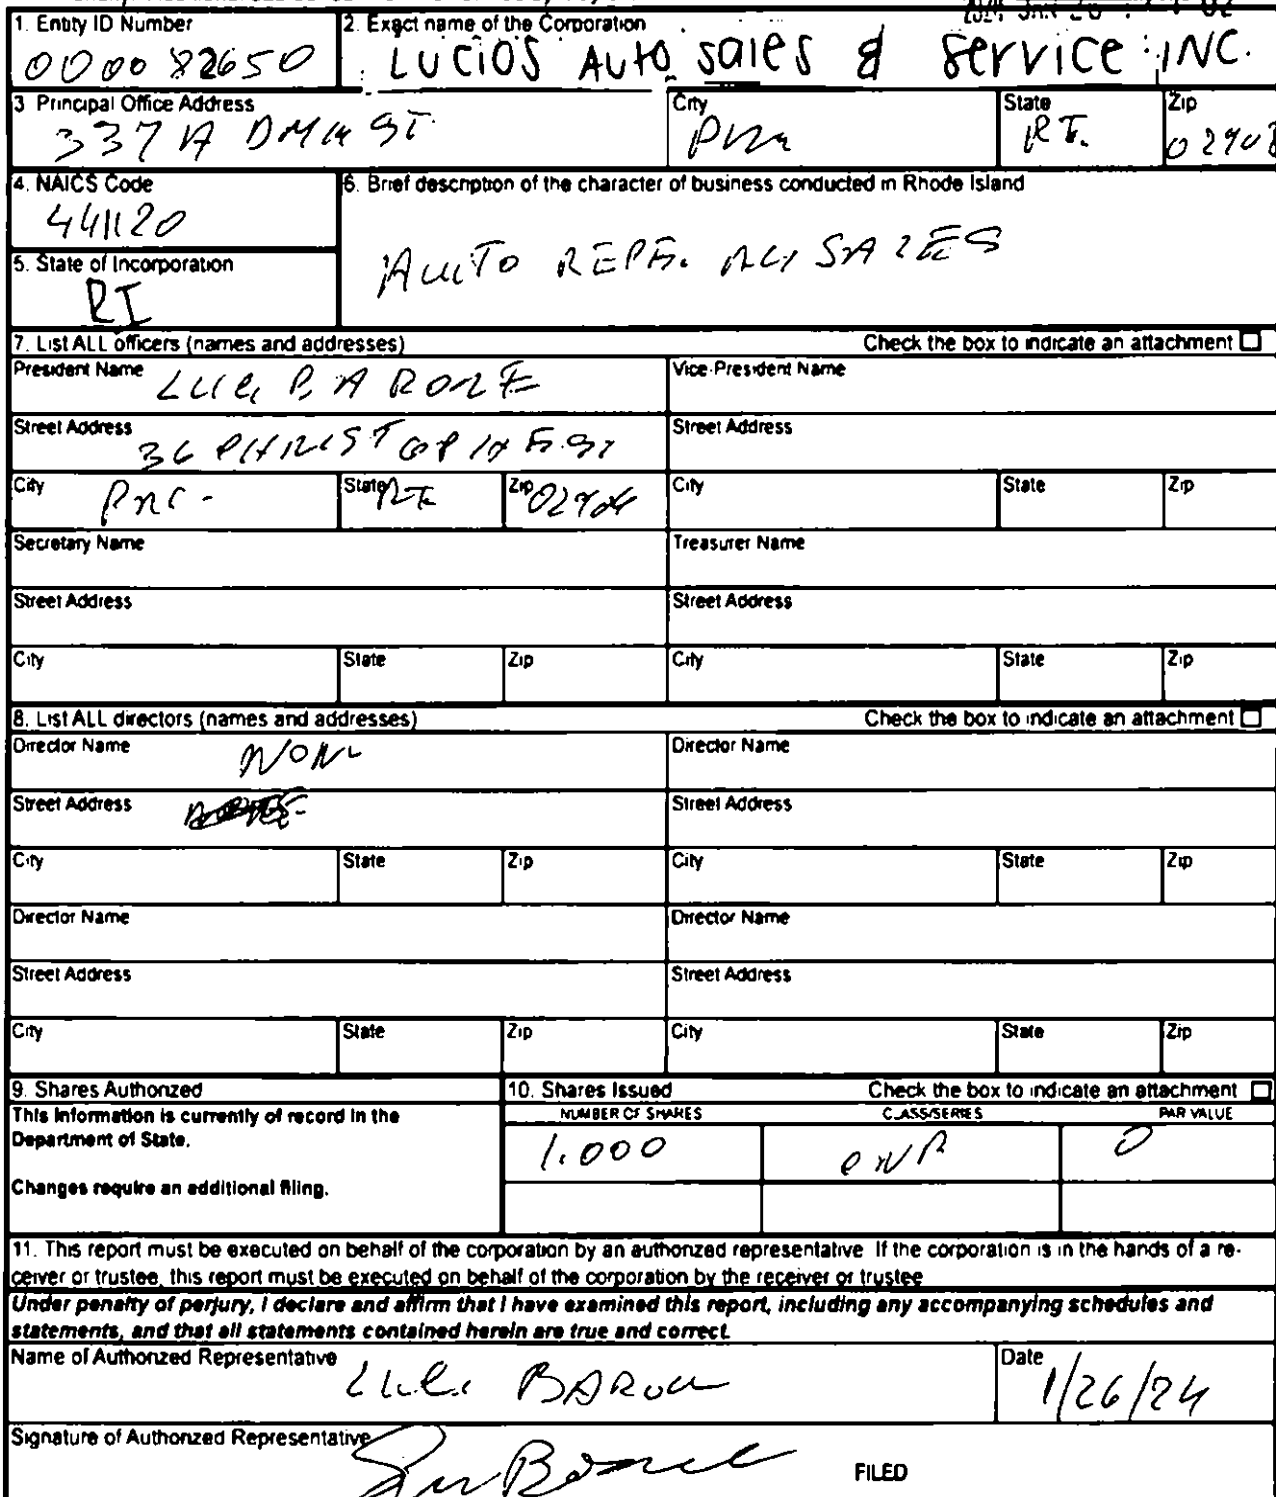 1. Entity ID Number
000082650
2. Exact name of the Corporation
LUCIOS AUTO sales & service INC.
3 Principal Office Address
337 A ST.
City
State
RI.
Zip
02908
4. NAICS Code
441120
5. State of Incorporation
RI
6. Brief description of the character of business conducted in Rhode Island
AUTO SALES
7. List ALL officers (names and addresses)
Check the box to indicate an attachment
President Name
BARONE
Vice-President Name
Street Address
36
Street Address
City
State
RI
Zip
City
State
Zip
Secretary Name
Treasurer Name
Street Address
Street Address
City
State
Zip
City
State
Zip
8. List ALL directors (names and addresses)
Check the box to indicate an attachment
Director Name
Director Name
Street Address
Street Address
City
State
Zip
City
State
Zip
Director Name
Director Name
Street Address
Street Address
City
State
Zip
City
State
Zip
9. Shares Authorized
This information is currently of record in the
Department of State.
Changes require an additional filing.
10. Shares Issued
Check the box to indicate an attachment
NUMBER OF SHARES
CLASS/SERIES
PAR VALUE
1.000
0
11. This report must be executed on behalf of the corporation by an authorized representative If the corporation is in the hands of a re-
ceiver or trustee, this report must be executed on behalf of the corporation by the receiver or trustee
Under penalty of perjury, I declare and affirm that I have examined this report, including any accompanying schedules and
statements, and that all statements contained herein are true and correct.
Name of Authorized Representative
Date
1/26/24
Signature of Authorized Representative
FILED